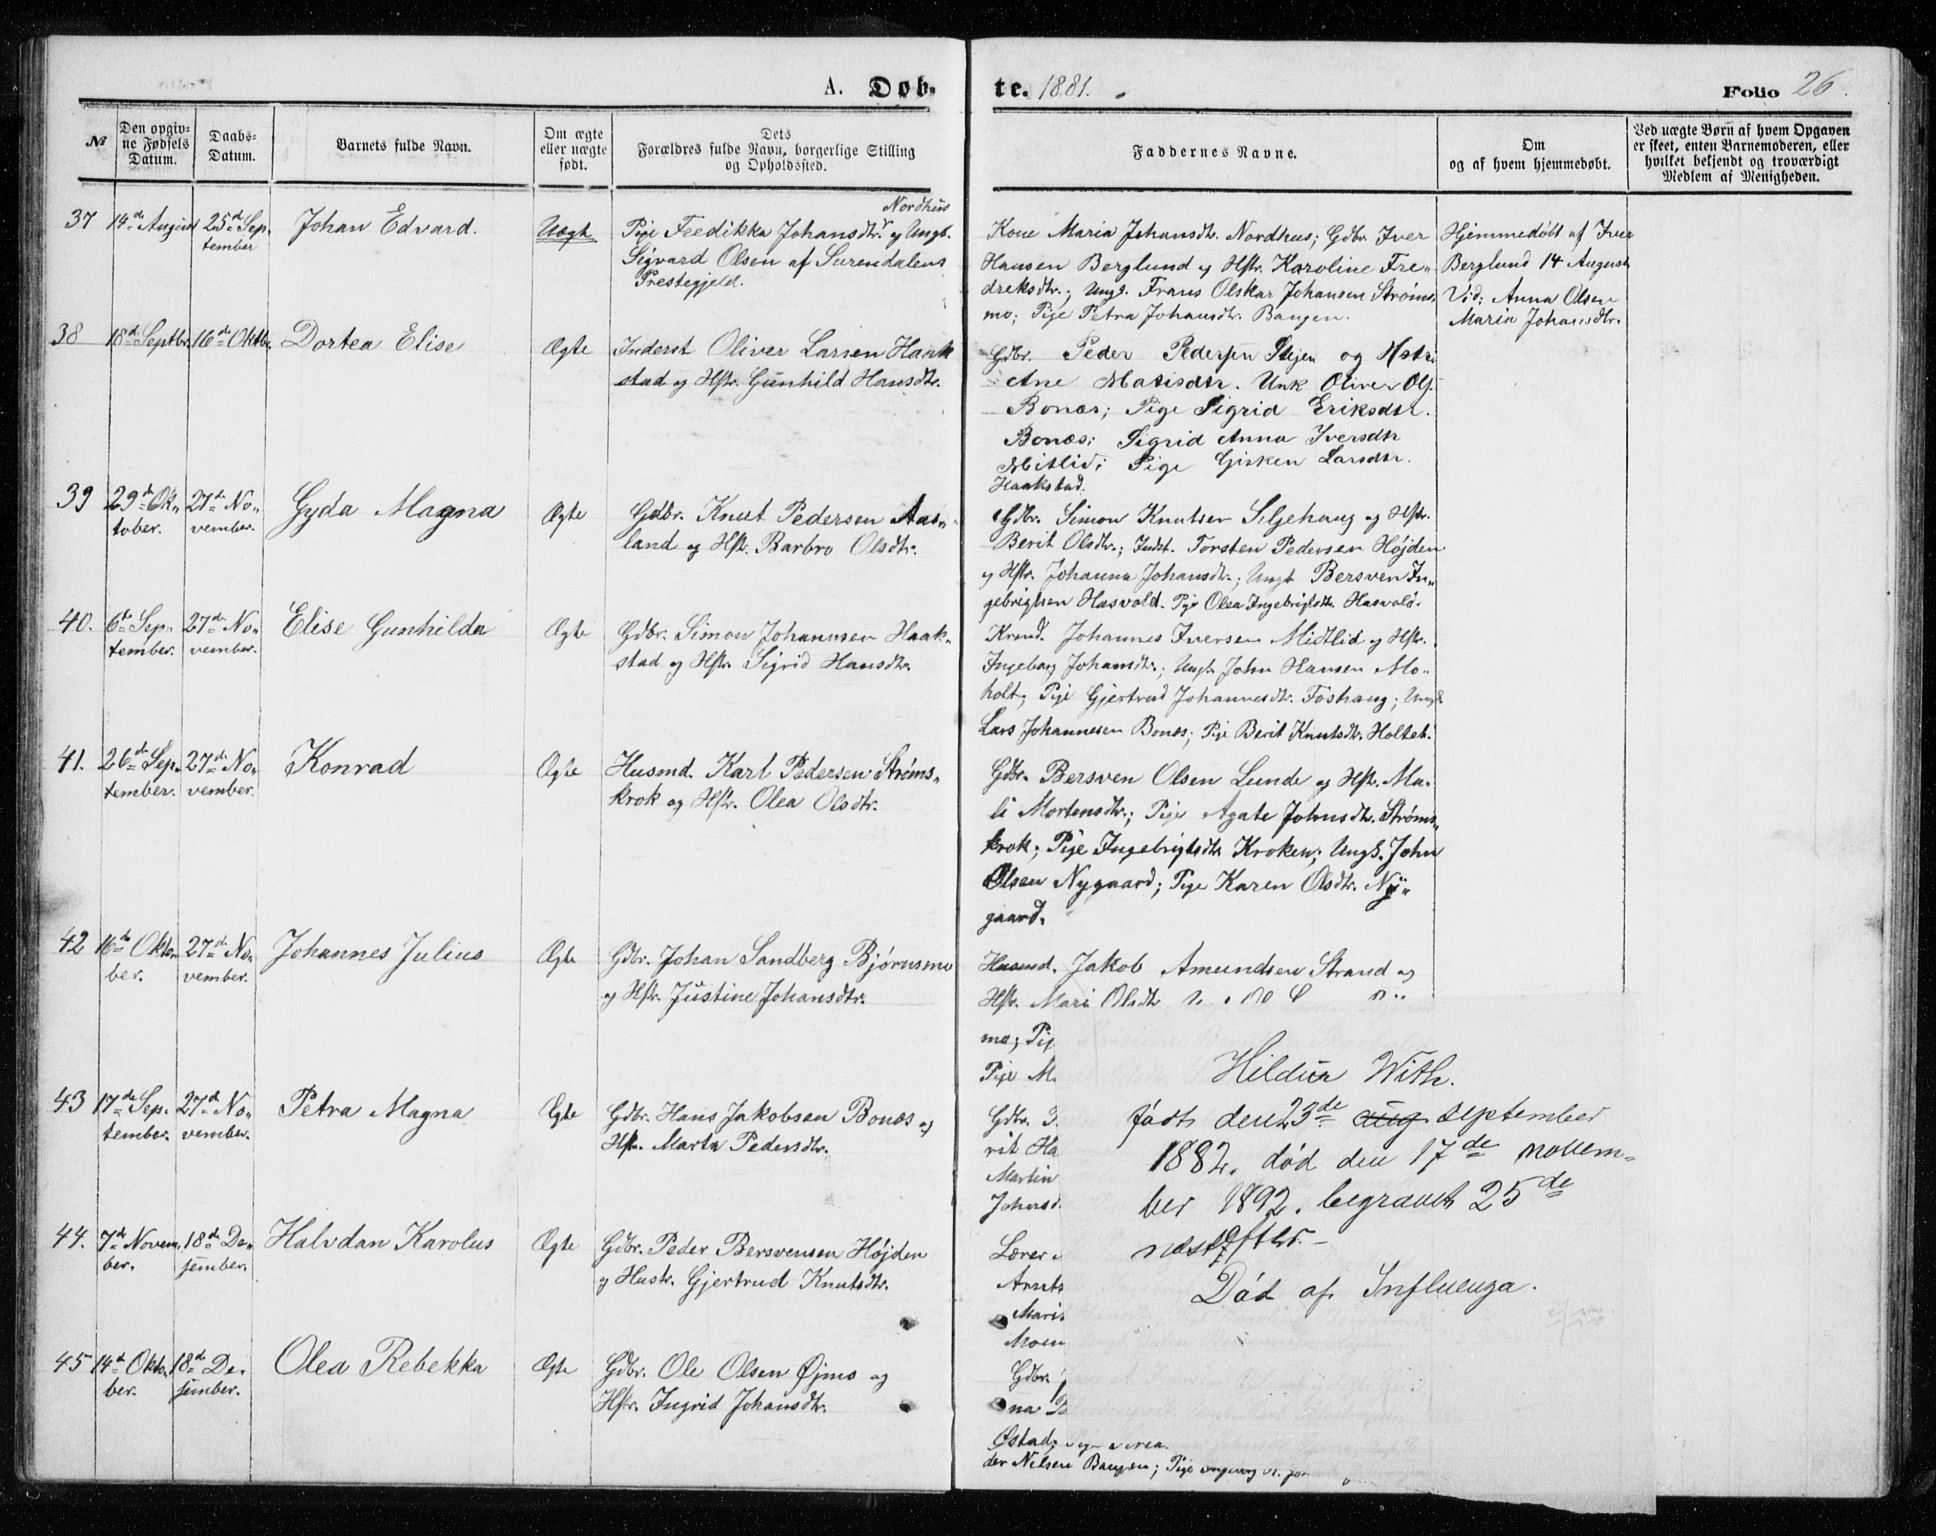 A. Døb-
te. 1881.
Folio 26.
№
Den opgiv-
ne Fødsels
Datum.
Daabs-
Datum.
Barnets fulde Navn.
Om ægte
eller uægte
født.
Dets
Forældres fulde Navn, borgerlige Stilling
og Opholdssted.
Faddernes Navne.
Om
og af hvem hjemmedøbt.
Ved uægte Børn af hvem Opgaven
er skeet, enten Barnemoderen, eller
hvilket bekjendt og troværdigt
Medlem af Menigheden.
37
14de August
25de Sep-
tember
Johan Edvard.
Uægt
Nordhus
Pige Fredikka Johansdtr. og Ungk.
Sigvard Olsen af Surendalens
Prestegjeld.
Kone Maria Johansdtr. Nordhus; Gdbr. Iver
Hansen Berglund og Hstr. Karoline Fre-
dreksdtr.; Ungk. Frans Olskar Johansen Strøms-
mo; Pige Petra Johansdtr. Baugen.
Hjemmedøbt af Iver
Berglund 14 August
Vid: Anna Olsen
Maria Johansdtr.
38
18de Septbr.
16de Oktbr.
Dortea Elise
Ægte
Inderst Oliver Larsen Haak
stad og Hstr. Gunhild Hansdtr.
Gdbr. Peder Pedersen Stejen og Hstr.
Ane Matisdtr. Unk Oliver Ols.
Bonæs; Pige Sigrid Eriksdtr.
Bonæs; Sigrid Anna Iversdtr
Mitlid; Pige Gisken Larsdtr.
Haakstad.
39
29de Ok-
tober.
27de No-
vember.
Gyda Magna
Ægte
Gdbr. Knut Pedersen Aas-
land og Hstr. Barbro Olsdtr.
Gdbr. Simon Knutsen Siljehaug og Hstr.
Berit Olsdtr.; Indst. Torsten Pedersen Højden
og Hstr. Johanna Johansdtr.; Ungk Bersven In-
gebrigtsen Hasvold. Pige Olea Ingebrigtsdtr. Hasvold.
40.
6te Sep-
tember.
27de No-
vember.
Elise Gunhilda
Ægte
Gdbr. Simon Johannsen Haak-
stad og Hstr. Sigrid Hansdtr.
Johannes Iversen Midtlid og Hstr.
Ingeborg Johansdtr.; Ungk. John Hansen Mo-
holt; Pige Gjertrud Johannesdtr. Foshaug; Ungk
Lars Johannesen Bonæs; Pige Berit Knutsdtr. Holtet.
41.
26de Sep-
tember.
27de No-
vember.
Konrad
Ægte
Husmd. Karl Pedersen Strøms-
krok og Hstr. Olea Olsdtr.
Gdbr. Bersven Olsen Lunde og Hstr. Ma-
li Mortensdtr.; Pige Agate Johnsdtr. Strøms-
krok; Pige Ingebrigtsdtr. Kroken; Ungk. John
Olsen Nygaard; Pige Karen Olsdtr. Ny-
gaard.
42
16de Okto-
ber.
27de No-
vember.
Johannes Julius
Ægte
Gdbr. Johan Sandberg Bjørnsmo
og Hstr. Justine Johansdtr.
Husmd. Jakob Amundsen Strand og
Hstr. Mari Olsdtr
mo; Pig
Pige M.
43
17de Sep-
tember.
27de No-
vember.
Petra Magna
Ægte
Gdbr. Hans Jakobsen Bonæs og
Hstr. Marta Pedersdtr.
Gdbr.
rit Ha
Martin
Johansd.
44.
7de Novem-
ber.
18de De-
sember.
Halvdan Karolus
Ægte
Gdbr. Peder Bersvensen Højden
og Hustr. Gjertrud Knutsdtr.
Lærer
Arnts
Marit
Moen
45
14de Okto-
ber.
18de De-
sember.
Olea Rebekka
Ægte
Gdbr. Ole Olsen Øjmo og
Hstr. Ingrid Johansdtr.
Gdbr.
na
Østad;
der Nelsen Baugen; Pige
Hildur With.
født den 23de aug september
1882. død den 17de novem-
ber 1892. begravet 25de
næstefter.
Død af Influenza.